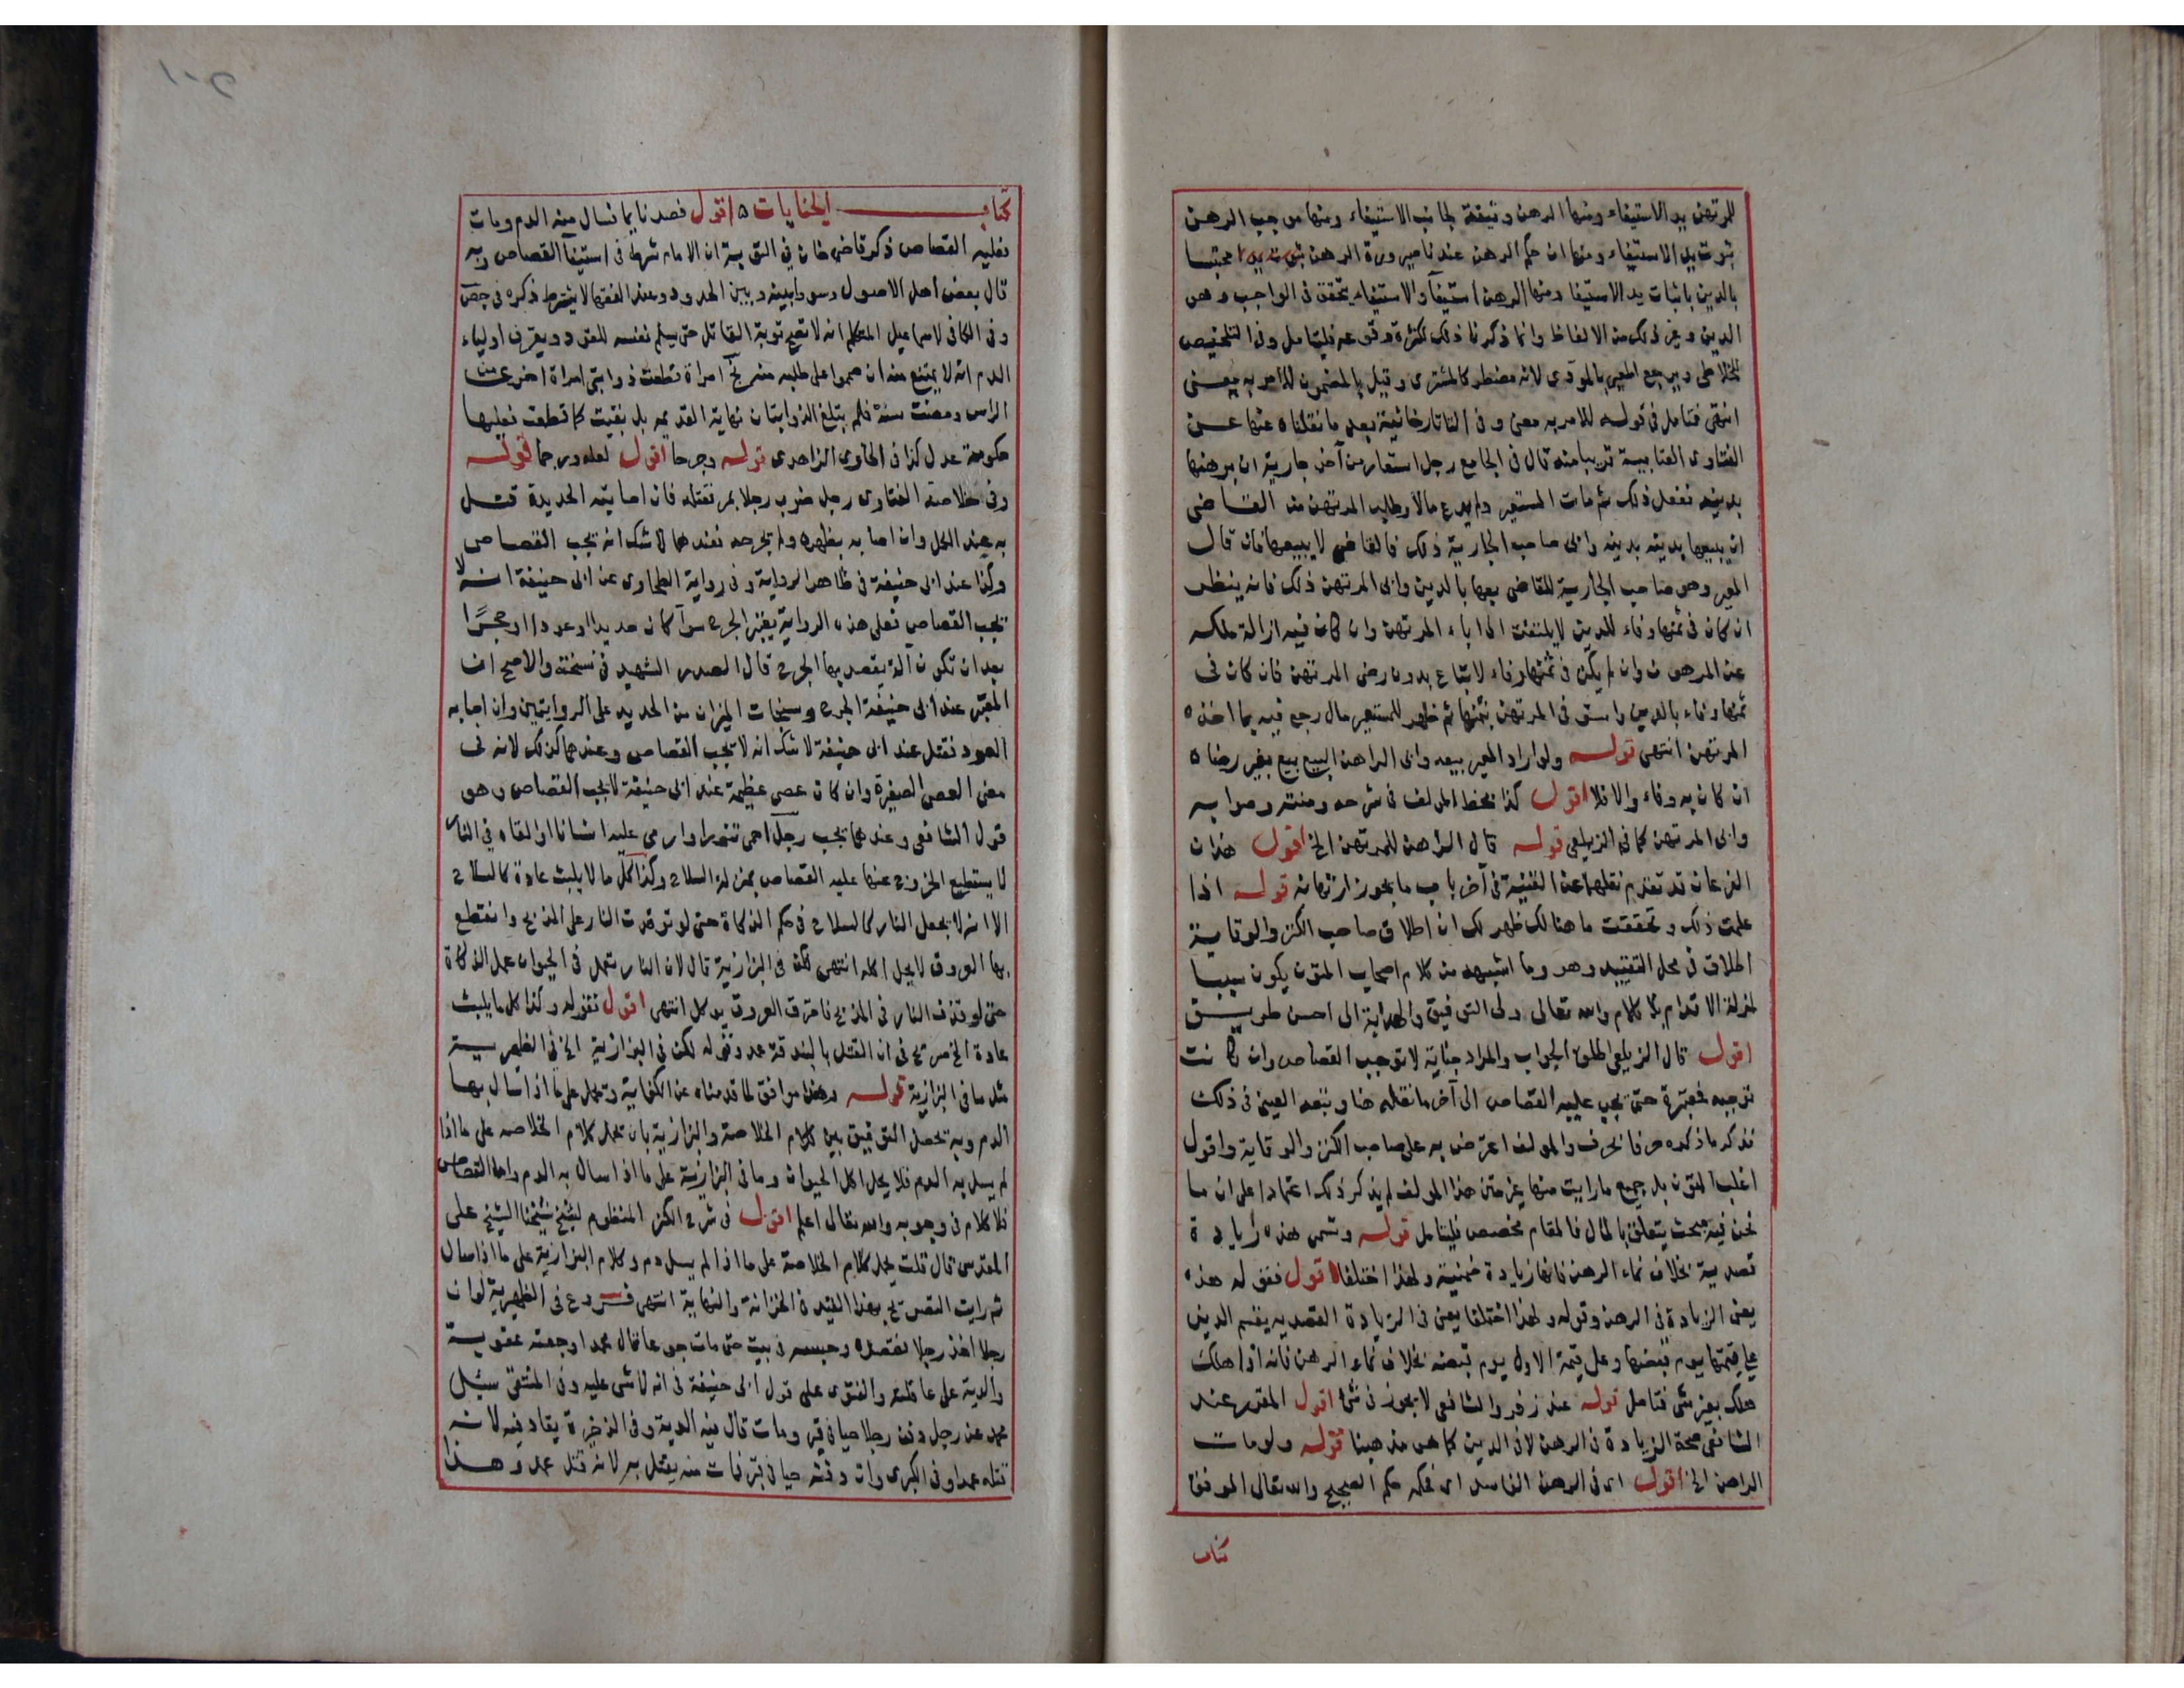 للمرتهن يد الاستيفاء ومنها الرهن وثيقة لجانب الاستيفاء ومنها موجب الرهن
ثبوت يد الاستيفاء ومنها ان حكم الرهن عندنا صيرورة الرهن محتبسا
بالدين باثبات يد الاستيفا ومنها الرهن استيفآ والاستيفاء يتحقق فى الواجب وهو
الدين وغير ذلك من الالفاظ وانما ذكرنا ذلك لكثرة وقوعه فليتامل وفى التلخيص
للخلاطى ويرجع المعير بالمودى لانه مضطر كالمشترى وقيل بالمضمون للامر به معنى
انتهى فتامل فى قوله للامر به معنى وفى التاتارخانية بعد ما نقلناه عنها عن
الفتاوى العتابية قريبا منه قال فى الجامع رجل استعار من آخر جارية ان يرهنها
بدينه ففعل ذلك ثم مات المستعير ولم يدع مالا وطلب المرتهن من القاضى
ان يبيعها بدينه وابى صاحب الجارية ذلك فالقاضى لا يبيعها فان قال
المعير وهو صاحب الجارية للقاضى بعها بالدين وابى المرتهن ذلك فانه ينظر
ان كان فى ثمنها وفاء للدين لا يلتفت الى اباء المرتهن وان كان فيه ازالة ملكه
عن المرهون وان لم يكن فى ثمنها وفاء لا تباع بدون رضى المرتهن فان كان فى
ثمنها وفاء بالدين واستوفى المرتهن ثمنها ثم ظهر للمستعير مال رجع فيه بما اخذه
المرتهن انتهى قوله ولو اراد المعير بيعه وابى الراهن البيع بيع بغير رضاه
ان كان به وفاء والا فلا اقول كذا بخط المولف فى شرحه ومتنه وصوابه
وابى المرتهن كما فى الزيلعى قوله قال الراهن للمرتهن الخ اقول هذان
الفرعان قد تقدم نقلهما عن القنية فى آخر باب ما يجوز ارتهانه قوله اذا
علمت ذلك وتحققت ما هنالك ظهر لك ان اطلاق صاحب الكنز والوقاية
اطلاق فى محل التقييد وهو وما اشبهه من كلام اصحاب المتون يكون سببا
لمزلة الاقدام والله تعالى ولى التوفيق والهداية الى احسن طريق
اقول قال الزيلعى اطلق الجواب والمراد جناية لا توجب القصاص وان كانت
توجبه فمعتبرة حتى يجب عليه القصاص الى آخر ما نقله هنا وتبعه العينى فى ذلك
فذكر ما ذكره حرفا بحرف والمولف اعترض به على صاحب الكنز والوقاية واقول
اغلب المتون بل جميع ما رايت منها غير متن هذا المولف لم يذكر ذلك اعتمادا على ان ما
نحن فيه مبحث يتعلق بالمال فالمقام مخصص فليتامل قوله وتسمى هذه زيادة
قصدية بخلاف نماء الرهن فانها زيادة ضمنية ولهذا اختلفا اقول فقوله هذه
يعنى الزيادة فى الرهن وقوله ولهذا اختلفا يعنى فى الزيادة القصدية يقسم الدين
على قيمتها يوم قبضها وعلى قيمة الاول يوم قبضه بخلاف نماء الرهن فانه اذا هلك
هلك بغير شى فتامل قوله عند زفر والشافعى لا يجوز فى شئ اقول المقرر عند
الشافعى صحة الزيادة فى الرهن لا فى الدين كما هو مذهبنا قوله ولو مات
الراهن الخ اقول اى فى الرهن الفاسد اى فحكمه حكم الصحيح والله تعالى الموفق
كتاب
كتاب الجنايات اقول فصدنايما فسال منه الدم ومات
فعليه القصاص ذكر قاضى خان فى ان الامام شرط فى استيفآ القصاص وبه
قال بعض اهل الاصول وسووا بينه وبين الحدود وعند الفقها لا يشترط ذكره فى
وفى الكافى لاسماعيل المتكلم انه لا تصح توبة القاتل حتى يسلم نفسه للقود ويعرف اولياء
الدم انه لا يمتنع منه ان صمموا على طلبه منه امراة قطعت ذوابتى امراة اخرى من
الراس ومضت سنة فلم يتبلغ الذوابتان نهاية القديمه بل بقيت كما قطعت فعليها
حكومة عدل كذا فى الحاوى الزاهدى قوله وجرحا اقول لعله ورجما قوله
وفى خلاصة الفتاوى رجل ضرب رجلا بمر فقتله فان اصابته الحديدة قتل
به عند الكل وان اصابه بظهره ولم يجرحه فعندهما لا شك انه يجب القصاص
وكذا عند ابى حنيفة فى ظاهر الرواية وفى رواية الطحاوى عن ابى حنيفة انه لا
يجب القصاص فعلى هذه الرواية يعتبر الجرح سوآ كان حديدا او عودا او حجرًا
بعد ان تكون آلة يقصد بها الجرح قال الصدر الشهيد فى نسخته والاصح ان
المعتبر عند ابى حنيفة الجرح وسنجات الميزان من الحديد على الروايتين وان اصابه
العود فقتل عند ابى حنيفة لا شك انه لا يجب القصاص وعندهما كذلك لانه فى
معنى العصى الصغيرة وان كان عصى عظيمة عند ابى حنيفة لا يجب القصاص وهو
قول الشافعى وعندهما يجب رجل احمى تنورا وارمى عليه انسانا او القاه فى النار
لا يستطيع الخروج عنها عليه القصاص بمنزلة السلاح وكذا كل ما لا يلبث عادة كالسلاح
الا انه لا يجعل النار كالسلاح فى حكم الذكاة حتى لو توقدت النار على المذبح وانقطع
بها العروق لا يحل اكله انتهى لكن فى البزازية قال لان النار تعمل فى الحيوان عمل الذكاة
حتى لو قذف النار فى المذبح فاحترق العروق يوكل انتهى اقول فقوله وكذا كل ما يلبث
عادة الخ صريح فى ان القتل بالبندقة عمد وقوله لكن فى البزازية الخ فى الظهيرية
مثل ما فى البزازية قوله وهذا موافق لما قدمناه عن الكفاية وتحمل على ما اذا سال بها
الدم وبه تحصل التوفيق بين كلام الخلاصة والبزازية بان تحمل كلام الخلاصه على ما اذا
لم يسل به الدم فلا يحل اكل الحيوان وما فى البزازية على ما اذا سال به الدم واما القصاص
فلا كلام فى وجوبه والله تعالى اعلم اقول فى شرح الكنز المنظوم لشيخ شيخنا الشيخ على
المقدسى قال قلت يحمل كلام الخلاصة على ما اذا لم يسل دم وكلام البزازية على ما اذا سال
ثم رايت التصريح بهذا القيد فى الخزانة والنهاية انتهى فروع فى الظهيرية لو ان
رجلا اخذ رجلا وحبسه فى بيت حتى مات جوعا قال محمد اوجعته عقوبة
والدية على عاقلته والفتوى على قول ابى حنيفة فى انه لا شى عليه وفى المنتقى سئل
محمد عن رجل دفن رجلا حيا فى قبر ومات قال فيه الدية وفى الذخيرة يقاد فيه لانه
قتله عمدا وفى الكبرى وان دفنه حيا فى قبر فمات منه يقتل به لانه قتل عمد وهذا